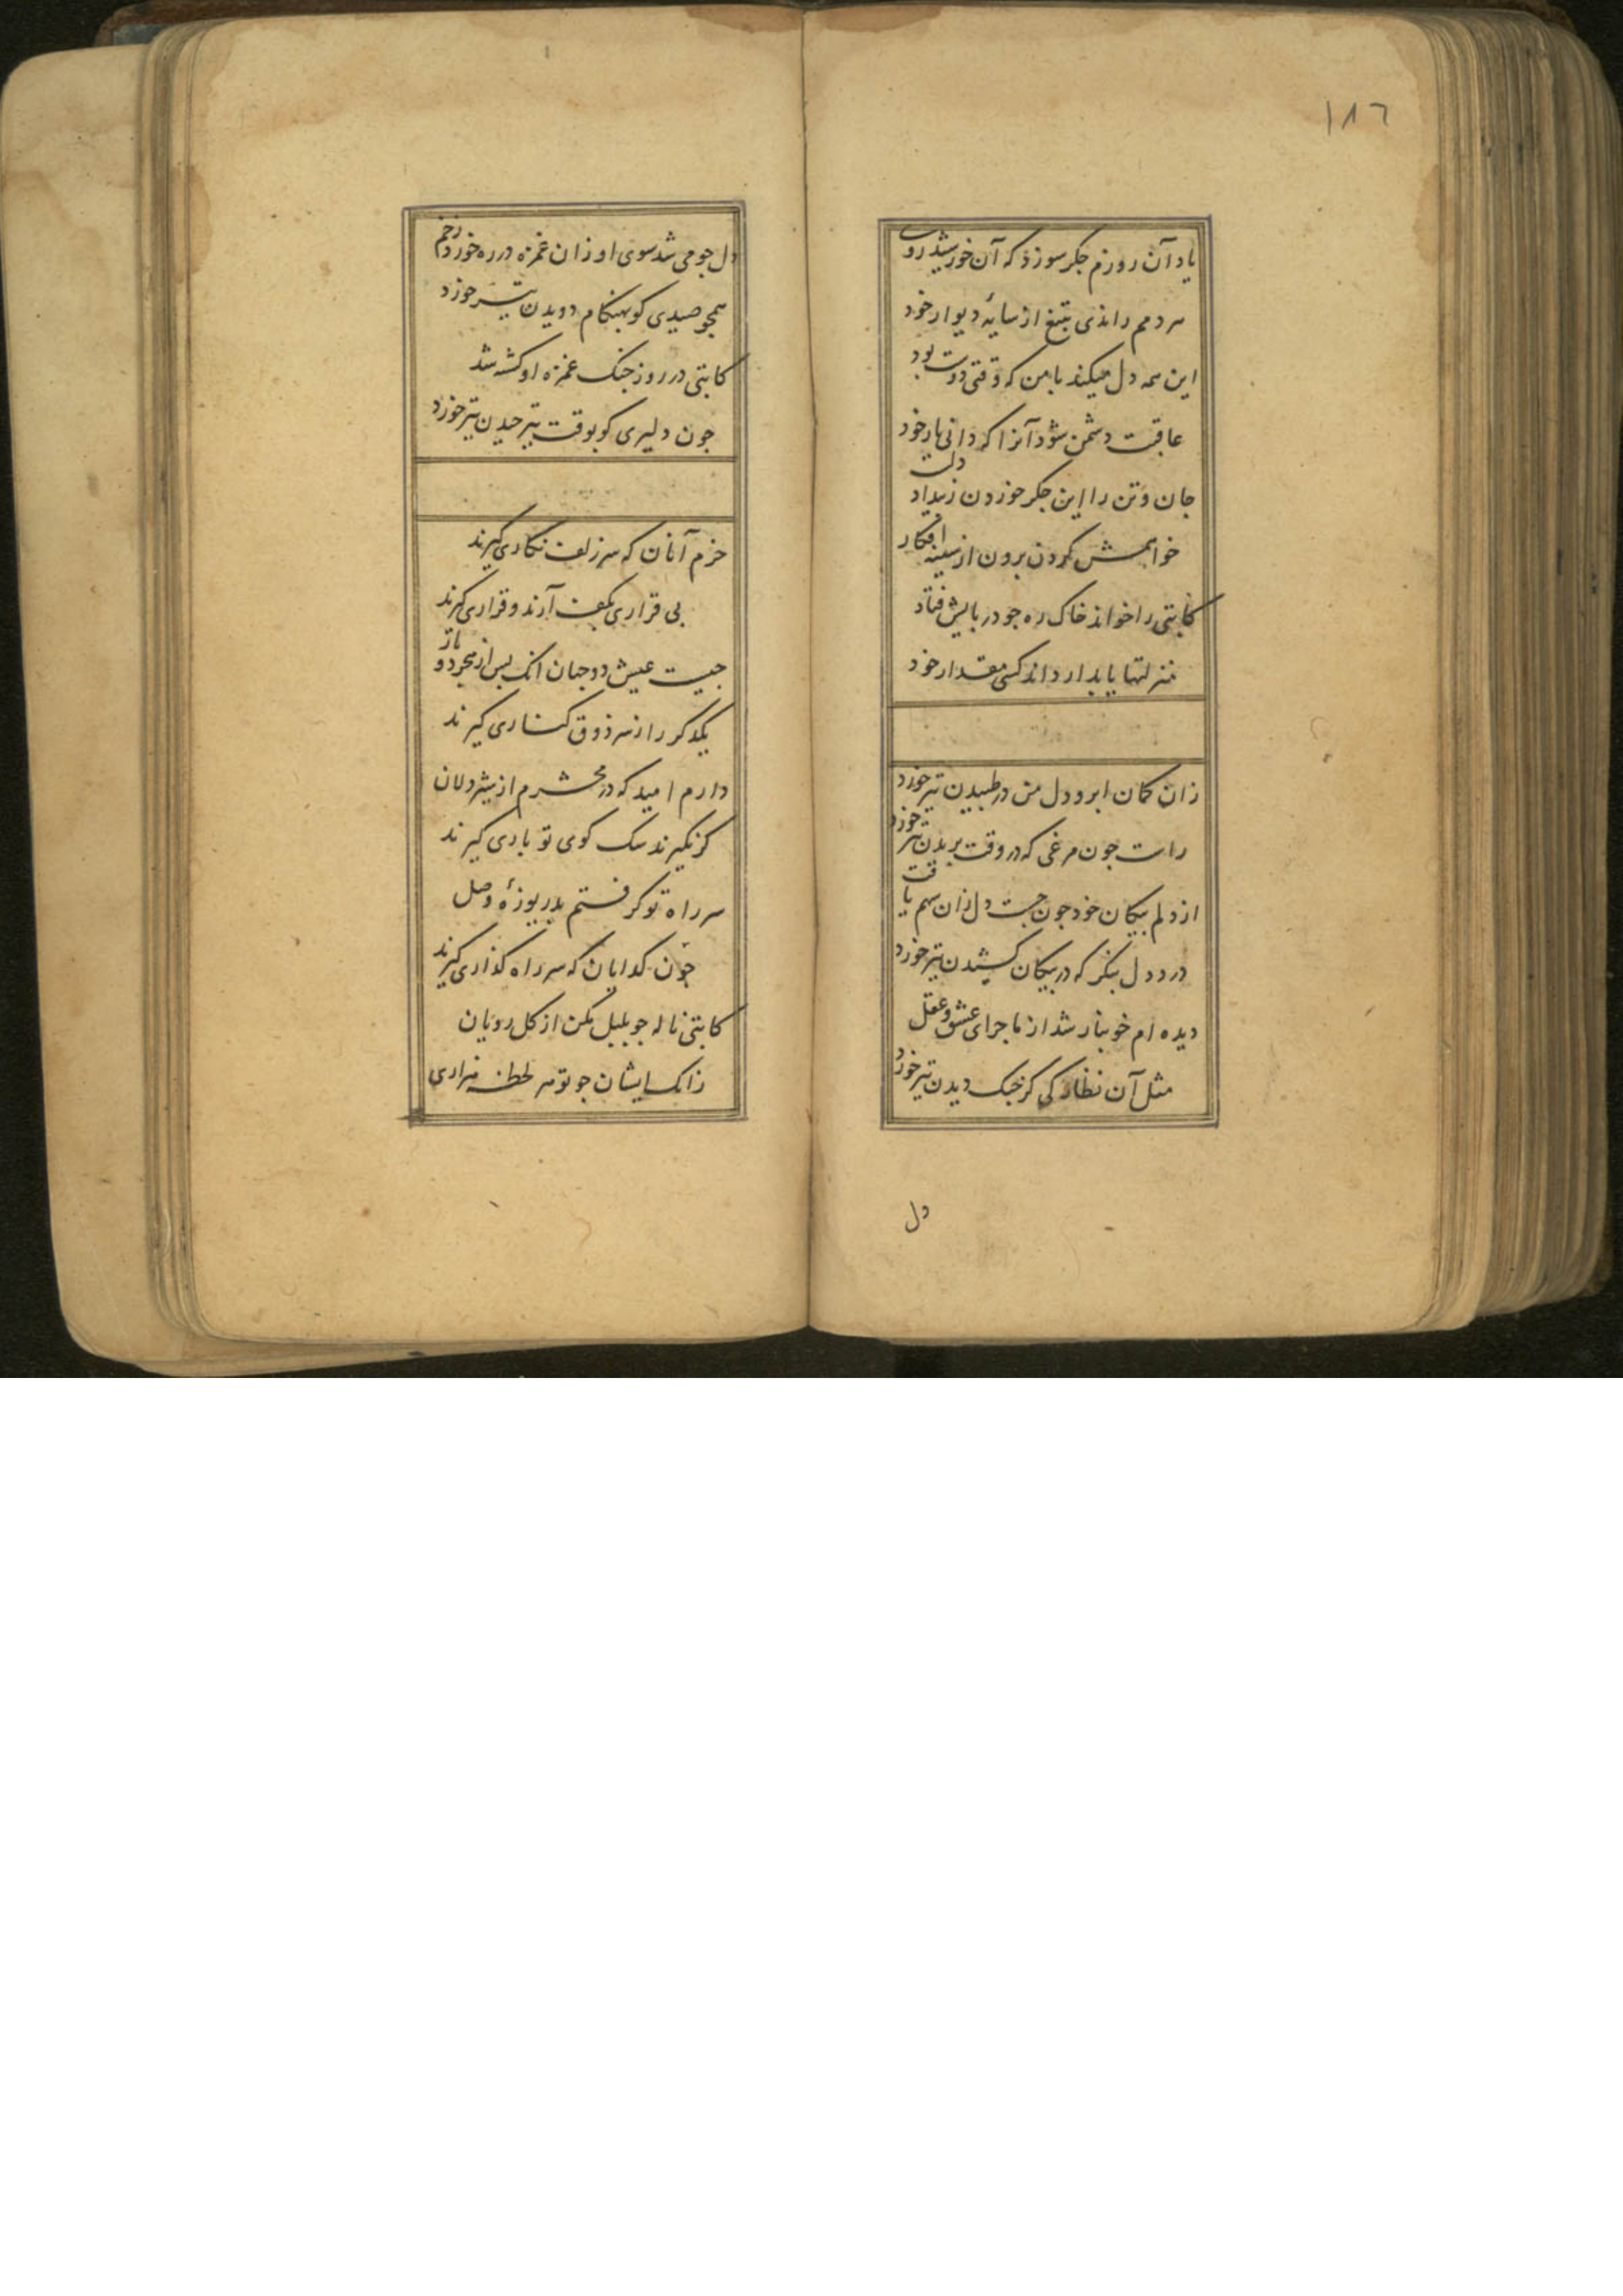 ١٨٦
یاد آن روزم جکر سوزد که آن خورشید روی
هر دمم راندی بتیغ از سایهٔ دیوار خود
این همه دل میکند با من که وقتی دوست بود
عاقبت دشمن شود آنرا که دانی یار خود
جان و تن را این جکر خوردن ز بیداد دلت
خواهمش کردن برون از سینه افکار خود
کاتبی را خواند خاک ره جو در پایش فتاد
منزلتها یابد ار داند کسی مقدار خود
زان کمان ابرو دل من در طبیدن تیر خورد
راست جون مرغی که در وقت بریدن تیر خورد
از دلم بیکان خود جون جست دل زان سهم یافت
درد دل بنکر که در بیکان کشیدن تیر خورد
دیده ام خونبار شد از ماجرای عشق و عقل
مثل آن نظارکی کز جنک دیدن تیر خورد
دل
دل جو می شد سوی او زان غمزه در ره خورد زخم
همجو صیدی کو بهنکام دویدن تیر خورد
کاتبی در روز جنک غمزه او کشته شد
جون دلیری کو بوقت تیر جیدن تیر خورد
خرم آنان که سر زلف نکاری کیرند
بی قراری بکف آرند و قراری کیرند
جیست عیش دو جهان انک بس از هجر دو یار
یکدکر را ز سر ذوق کناری کیرند
دارم امید که در محشرم از شیر دلان
کر نکیرند سک کوی تو باری کیرند
سر راه تو کرفتم بدریوزهٔ وصل
جون کدایان که سر راه کذاری کیرند
کاتبی ناله جو بلبل مکن از کل رویان
زانک ایشان جو تو هر لحظه هزاری